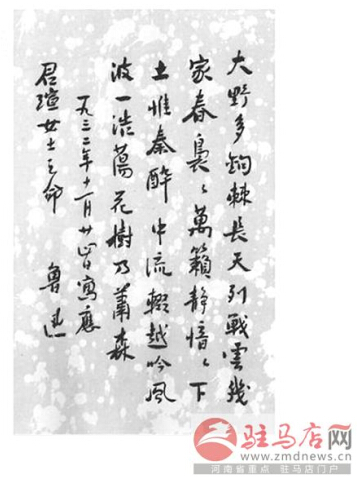 大野多鉤棘長天列戰雲幾
家春裊〻萬籟静愔〻下
土惟秦醉中流輟越吟風
波一浩蕩花樹乃蕭森
一九三二年十一月廿四日寫應
君瑄女士之命
魯迅
驻马店网
www.zmdnews.cn
河南省重点 驻马店门户